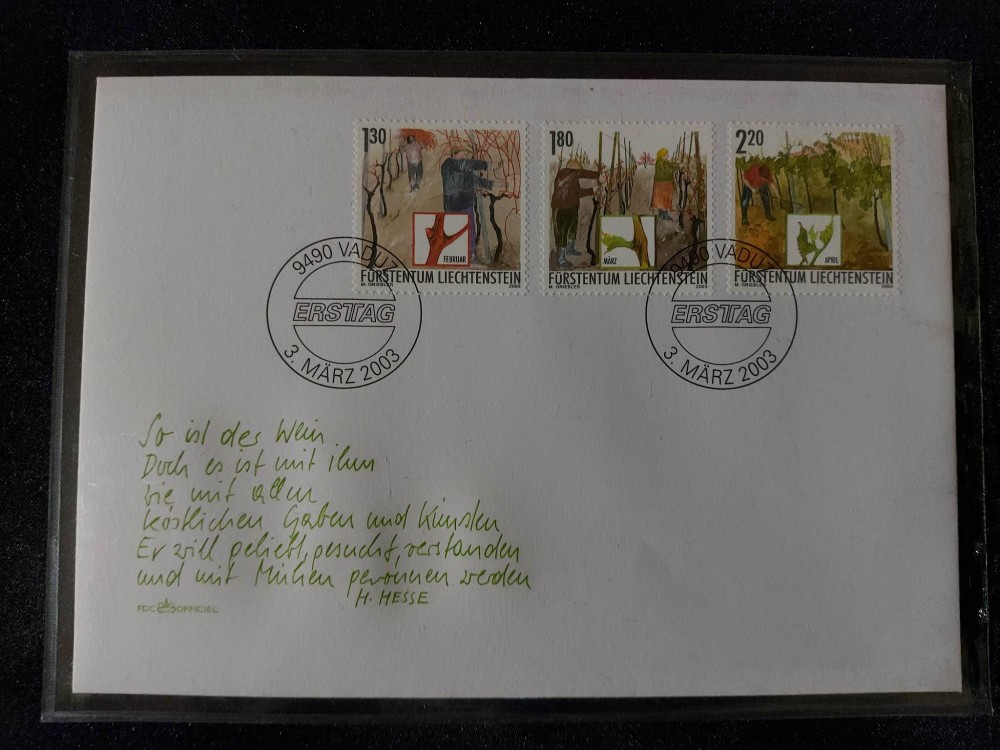 1.30
FEBRUAR
FÜRSTENTUM LIECHTENSTEIN
M. GREBLER 2003
1.80
MÄRZ
FÜRSTENTUM LIECHTENSTEIN
M. GREBLER 2003
2.20
APRIL
FÜRSTENTUM LIECHTENSTEIN
M. GREBLER 2003
9490 VADUZ
ERSTTAG
3. MÄRZ 2003
9490 VADUZ
ERSTTAG
3. MÄRZ 2003
So ist der Wein.
Doch es ist mit ihm
wie mit allen
köstlichen Gaben und Künsten
Er will geliebt, gesucht, verstanden
und mit Mühen gewonnen werden
H. HESSE
FDC OFFICIEL